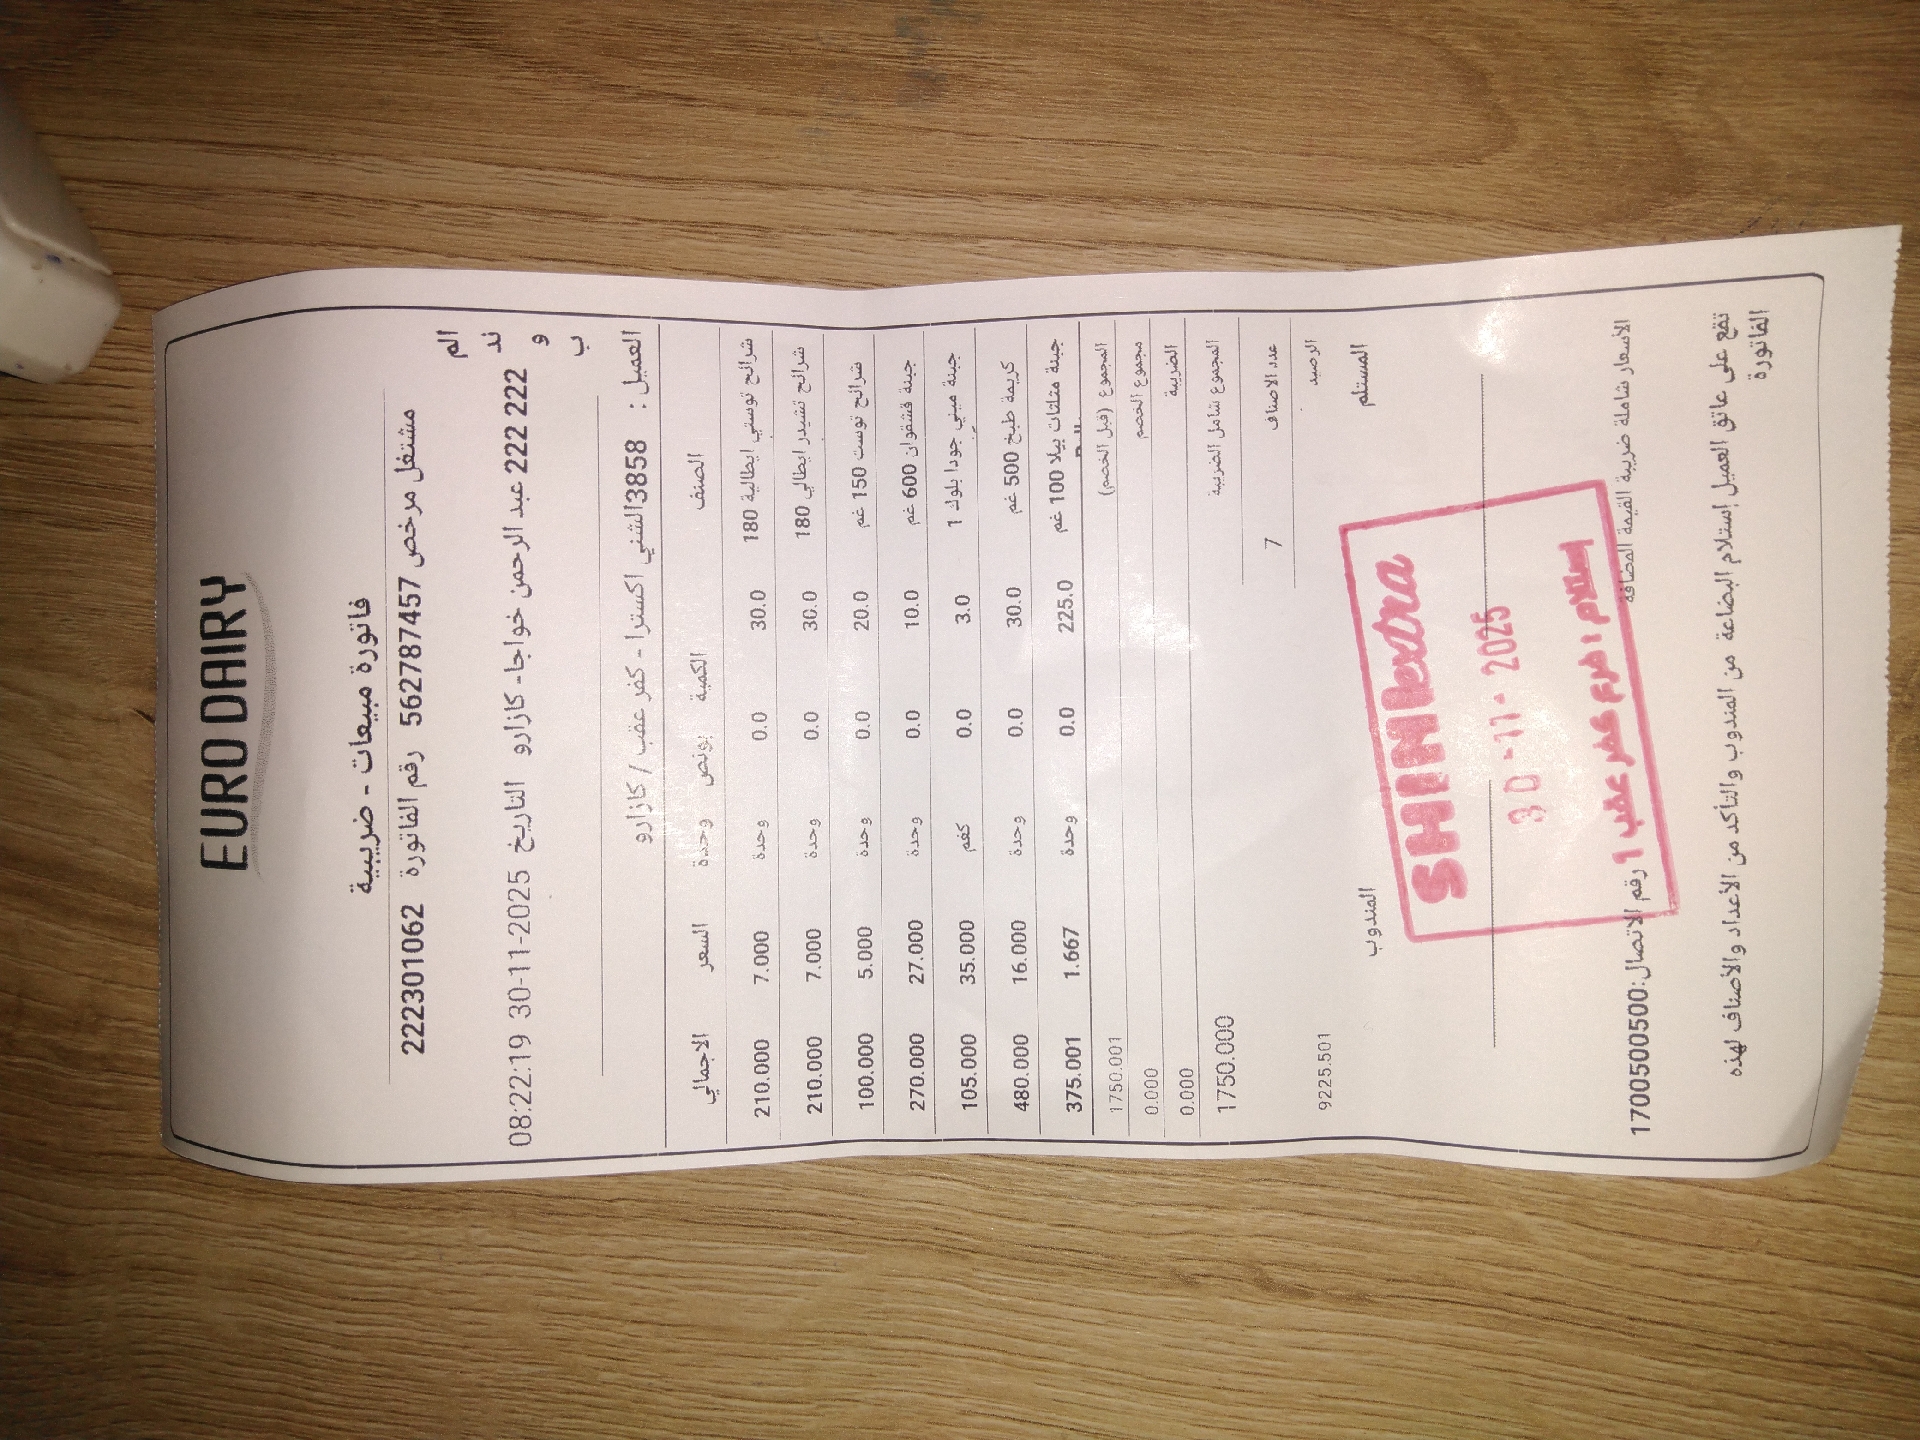 EURO DAIRY
فاتورة مبيعات - ضريبية
مشتغل مرخص 562787457 رقم الفاتورة 222301062
المندوب 222 222 عبد الرحمن خواجا- كازارو التاريخ 30-11-2025 08:22:19
العميل : 3858الشني اكسترا - كفر عقب / كازارو
الصنف الكمية بونص وحدة السعر الاجمالي
شرائح توستي ايطالية 180 30.0 0.0 وحدة 7.000 210.000
شرائح تشيدر ايطالي 180 30.0 0.0 وحدة 7.000 210.000
شرائح توست 150 غم 20.0 0.0 وحدة 5.000 100.000
جبنة قشقوان 600 غم 10.0 0.0 وحدة 27.000 270.000
جبنة ميني جودا بلوك 1 3.0 0.0 كغم 35.000 105.000
كريمة طبخ 500 غم 30.0 0.0 وحدة 16.000 480.000
جبنة مثلثات بيلا 100 غم 225.0 0.0 وحدة 1.667 375.001
المجموع (قبل الخصم) 1750.001
مجموع الخصم 0.000
الضريبة 0.000
المجموع شامل الضريبة 1750.000
عدد الاصناف 7
الرصيد 9225.501
المستلم المندوب
SHINI extra
30-11-2025
إستلام ا فرع كفر عقب 1
الأسعار شاملة ضريبة القيمة المضافة رقم الاتصال:1700500500
تقع على عاتق العميل إستلام البضاعة من المندوب والتأكد من الأعداد والأصناف لهذه
الفاتورة